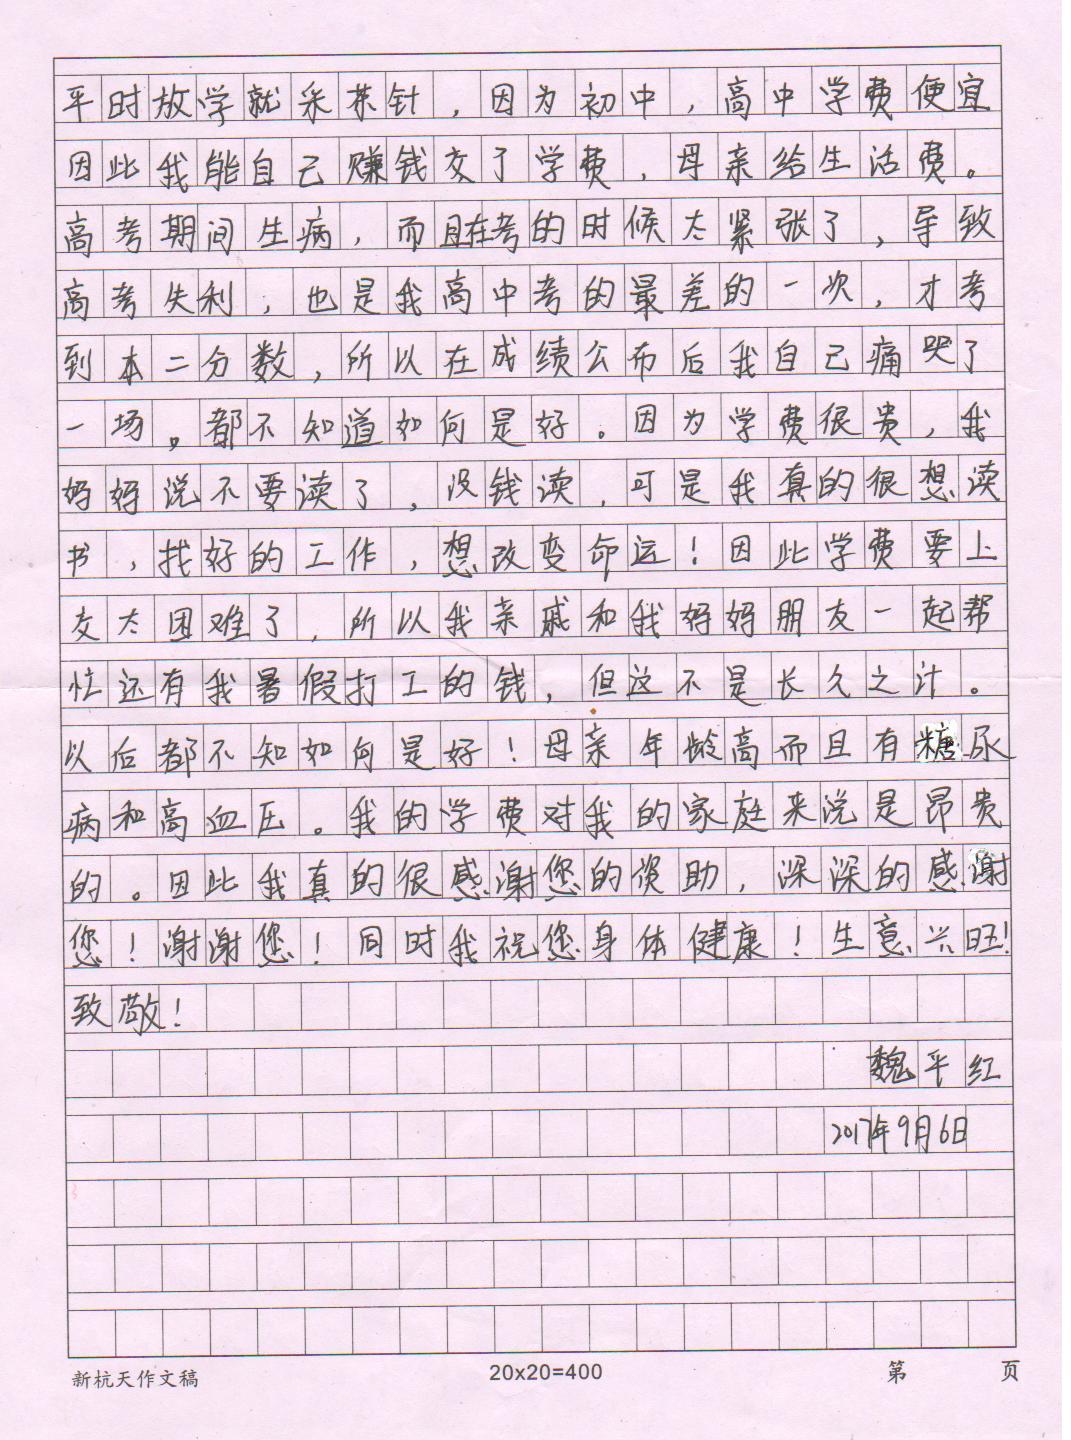 平时放学就采茶针，因为初中，高中学费便宜
因此我能自己赚钱交了学费，母亲给生活费。
高考期间生病，而且在考的时候太紧张了，导致
高考失利，也是我高中考的最差的一次，才考
到本二分数，所以在成绩公布后我自己痛哭了
一场。都不知道如何是好。因为学费很贵，我
妈妈说不要读了，没钱读，可是我真的很想读
书，找好的工作，想改变命运！因此学费要上
交太困难了，所以我亲戚和我妈妈朋友一起帮
忙还有我暑假打工的钱，但这不是长久之计。
以后都不知如何是好！母亲年龄高而且有糖尿
病和高血压。我的学费对我的家庭来说是昂贵
的。因此我真的很感谢您的资助，深深的感谢
您！谢谢您！同时我祝您身体健康！生意兴旺！
致敬！
魏平红
2017年9月6日
新杭天作文稿 20x20=400 第 页